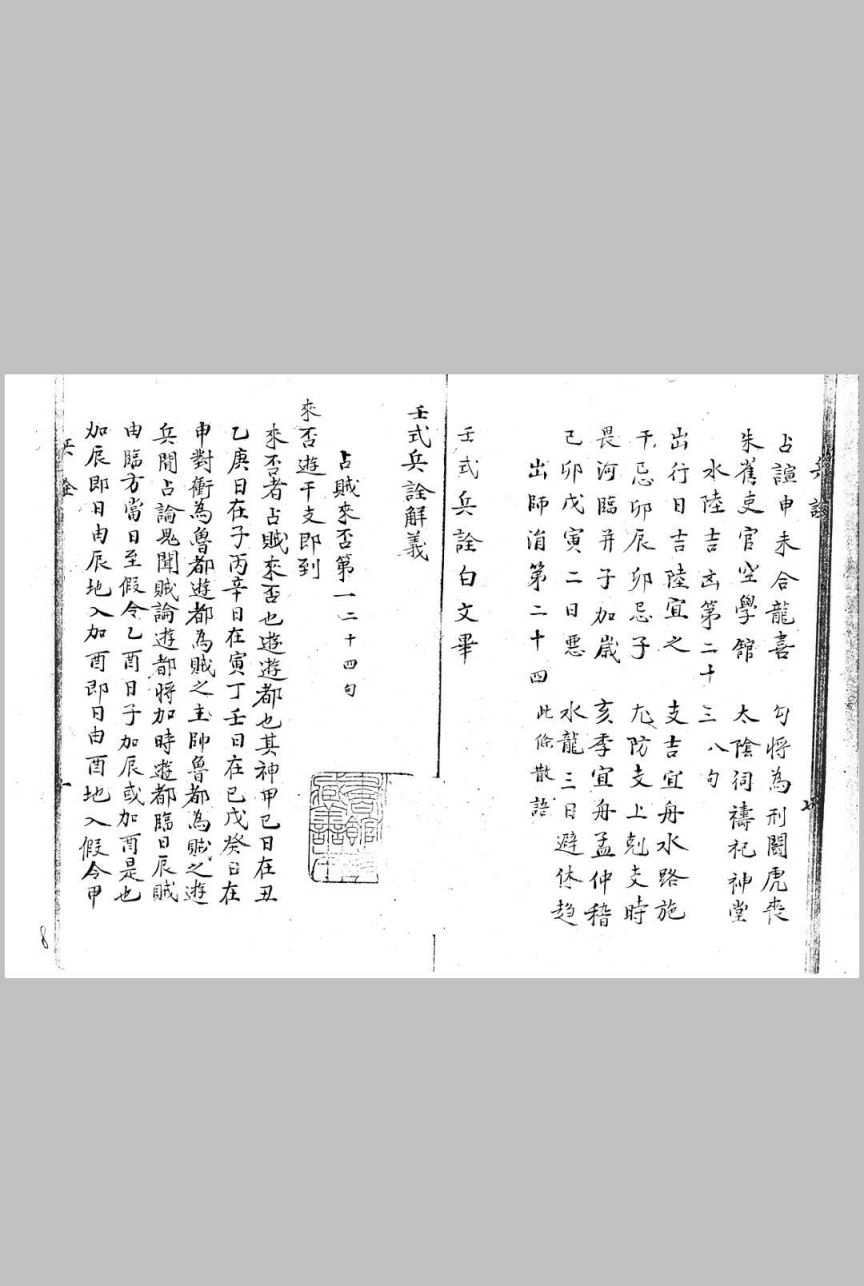 占諠申未合龍喜　勾將為刑鬪虎喪
朱雀吏官空學館　太陰祠禱祀神堂
水陸吉凶第二十三　八句
出行日吉陸宜之　支吉宜舟水路施
干忌卯辰卯忌子　尤防支上剋支時
畏河臨井子加歲　亥季宜舟孟仲稽
己卯戊寅二日惡　水龍三日避休趋
出師涓第二十四　此條散語
壬式兵詮白文畢
壬式兵詮解義
占賊來否第一　二十四句
來否遊干支即到
來否者占賊來否也遊遊都也其神甲己日在丑
乙庚日在子丙辛日在寅丁壬日在巳戊癸日在
申對衝為魯都遊都為賊之主帥魯都為賊之遊
兵閒占論見聞賊論遊都將加時遊都臨日辰賊
由臨方當日至假令乙酉日子加辰或加酉是也
加辰即日由辰地入加酉即日由酉地入假令甲
兵詮
七
一
8